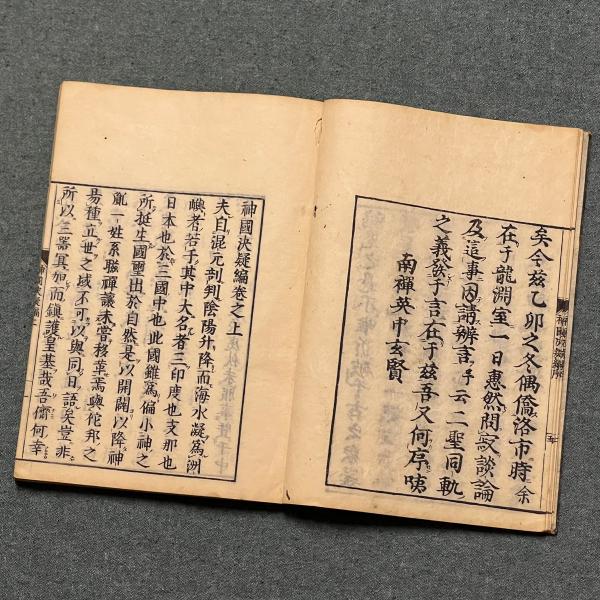 矣今茲乙卯之冬偶僑洛市時余
在于龍淵室一日惠然問寂談論
及這事因請辨言予云二聖同軌
之義發于言在于茲吾又何序咦
南禪英中玄賢
神國決疑編卷之上
夫自混元剖判陰陽升降而海水凝爲洲
嶼者若于其中大名者三印度也支那也
日本也於三國中也此國雖爲偏小神之
所挺生國璽出於自然是以開闢以降神
胤一姓系聯禪讓未嘗移革焉與佗邦之
易種立世之域不可以與同日語矣豈非
所以三器眞如而鎮護皇基哉吾儕何幸